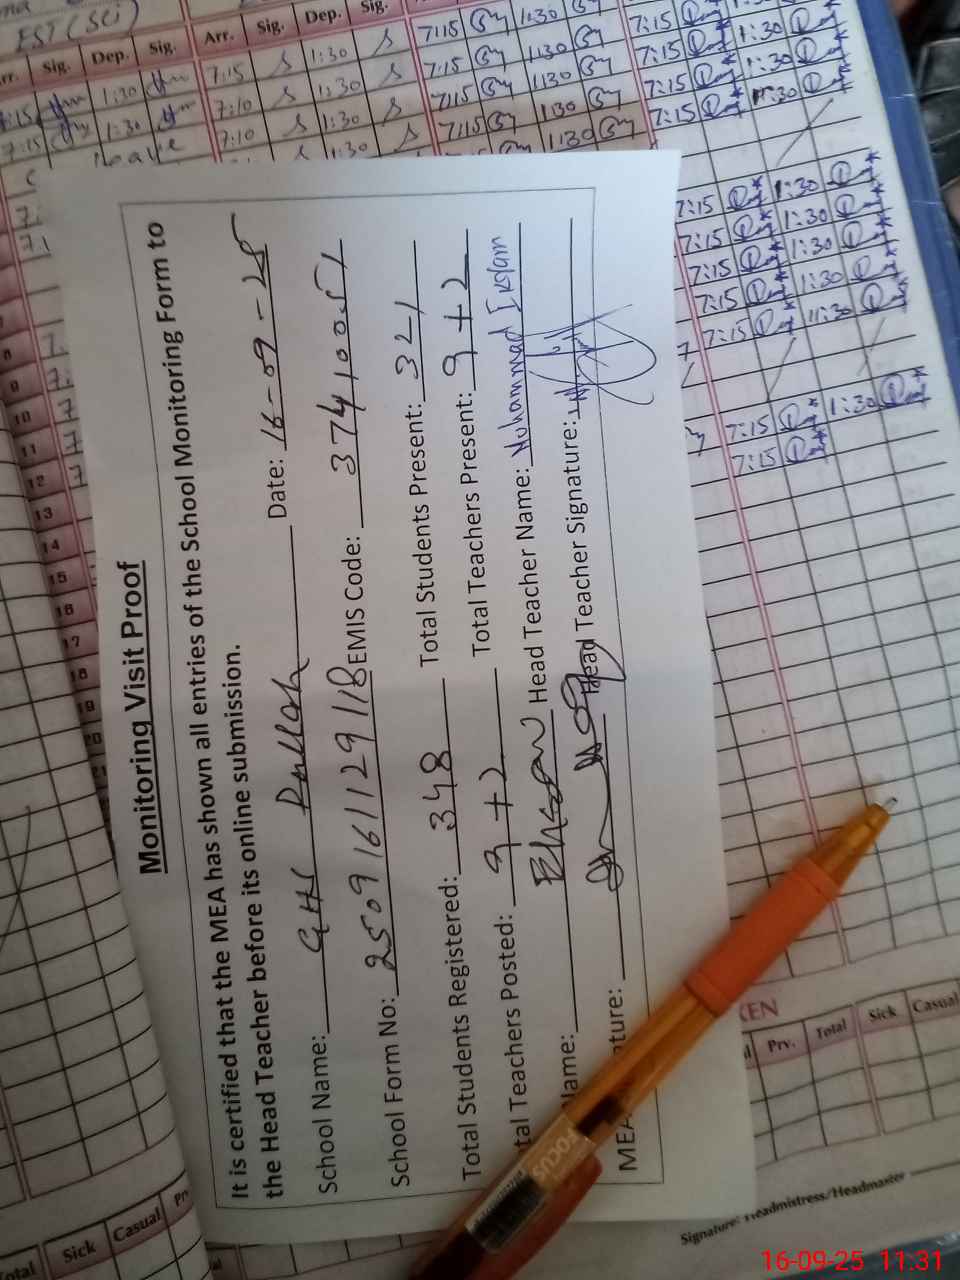 Monitoring Visit Proof
It is certified that the MEA has shown all entries of the School Monitoring Form to
the Head Teacher before its online submission.
School Name: GHS Date: 16-09-25
School Form No: 2509161129118 EMIS Code: 37410051
Total Students Registered: 348 Total Students Present: 321
tal Teachers Posted: 9+2 Total Teachers Present: 9+2
Name: Ehsan Head Teacher Name: Muhammad Islam
MEA ture: Head Teacher Signature:
EST (SCI)
Arr. Sig. Dep. Sig. Arr. Sig. Dep. Sig.
7:15 1:30 7:15 1:30 7:15 1:30 7:15 1:30
7:15 1:30 7:10 1:30 7:15 1:30 7:15 1:30
Leave 7:10 1:30 7:15 1:30 7:15 1:30
1:30 7:15 1:30 7:15 1:30
1:30
7:15 1:30
7:15 1:30
7:15 1:30
7:15 1:30
7:15 11:30
7:15 1:30
7:15
8
9
10
11
12
13
14
15
16
17
18
19
20
21
KEN
Prv. Total Sick Casual
Total Sick Casual
Signature: Headmistress/Headmaster
FOCUS
16-09-25 11:31